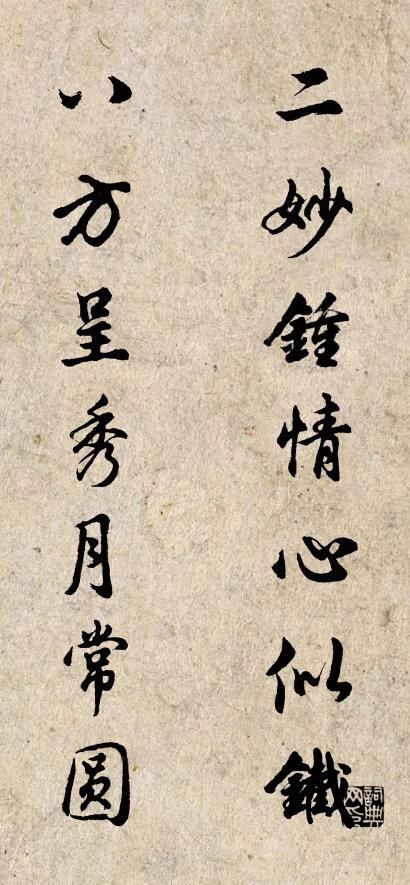 二妙鍾情心似鐵
八方呈秀月常圆
詞典网